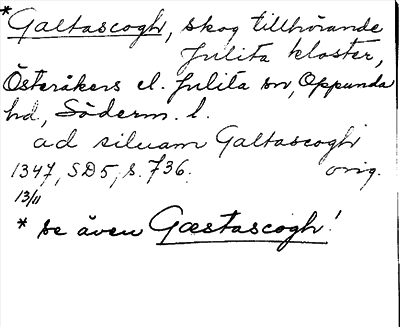 *Galtascogh, skog tillhörande
Julita kloster,
Österåkers el. Julita sn, Oppunda
hd, Söderm. l.
ad siluam Galtascogh
1347, SD5, s. 736. orig.
13/11
* se även Gæstascogh!